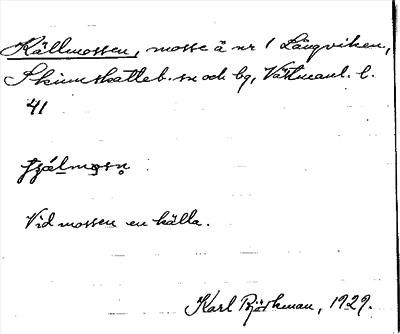 Källmossen, mosse å nr 1 Långviken,
Skinnskatteb. sn och bg, Västmanl. l.
41
Vid mossen en källa.
Karl Björkman, 1929.